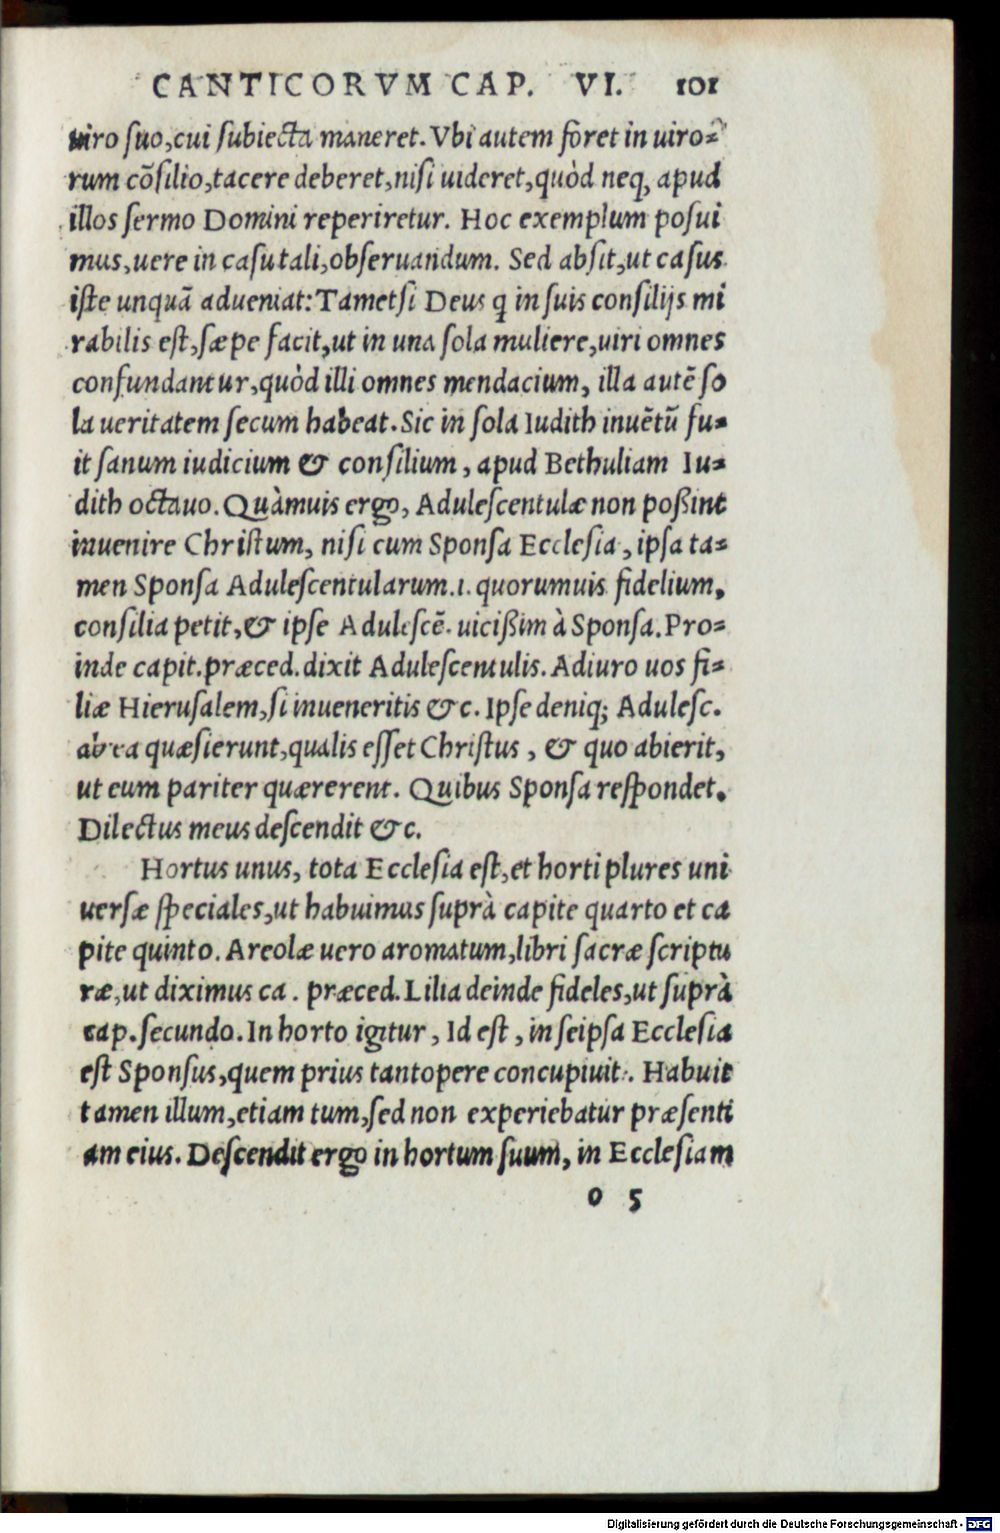 CANTICORVM CAP. VI. 101
uiro ſuo, cui ſubiecta maneret. Vbi autem foret in uiro⸗
rum cõſilio, tacere deberet, niſi uideret, quòd neq; apud
illos ſermo Domini reperiretur. Hoc exemplum poſui
mus, uere in caſu tali, obſeruandum. Sed abſit, ut caſus
iſte unquã adueniat: Tametſi Deus q in ſuis conſilijs mi
rabilis eſt, ſæpe facit, ut in una ſola muliere, uiri omnes
confundantur, quòd illi omnes mendacium, illa autẽ ſo
la ueritatem ſecum habeat. Sic in ſola Iudith inuẽtũ fu⸗
it ſanum iudicium & conſilium, apud Bethuliam Iu⸗
dith octauo. Quàmuis ergo, Aduleſcentulæ non poßint
inuenire Chriſtum, niſi cum Sponſa Eccleſia, ipſa ta⸗
men Sponſa Aduleſcentularum .i. quorumuis fidelium,
conſilia petit, & ipſe Aduleſcẽ. uicißim à Sponſa. Pro⸗
inde capit. præced. dixit Aduleſcentulis. Adiuro uos fi⸗
liæ Hieruſalem, ſi inueneritis &c. Ipſe deniq; Aduleſc.
ab ea quæſierunt, qualis eſſet Chriſtus, & quo abierit,
ut eum pariter quærerent. Quibus Sponſa reſpondet.
Dilectus meus deſcendit &c.
Hortus unus, tota Eccleſia eſt, et horti plures uni
uerſæ ſpeciales, ut habuimus ſuprà capite quarto et ca
pite quinto. Areolæ uero aromatum, libri ſacræ ſcriptu
ræ, ut diximus ca. præced. Lilia deinde fideles, ut ſuprà
cap. ſecundo. In horto igitur, Id eſt, in ſeipſa Eccleſia
eſt Sponſus, quem prius tantopere concupiuit. Habuit
tamen illum, etiam tum, ſed non experiebatur præſenti
am eius. Deſcendit ergo in hortum ſuum, in Eccleſiam
o 5
Digitalisierung gefördert durch die Deutsche Forschungsgemeinschaft - DFG